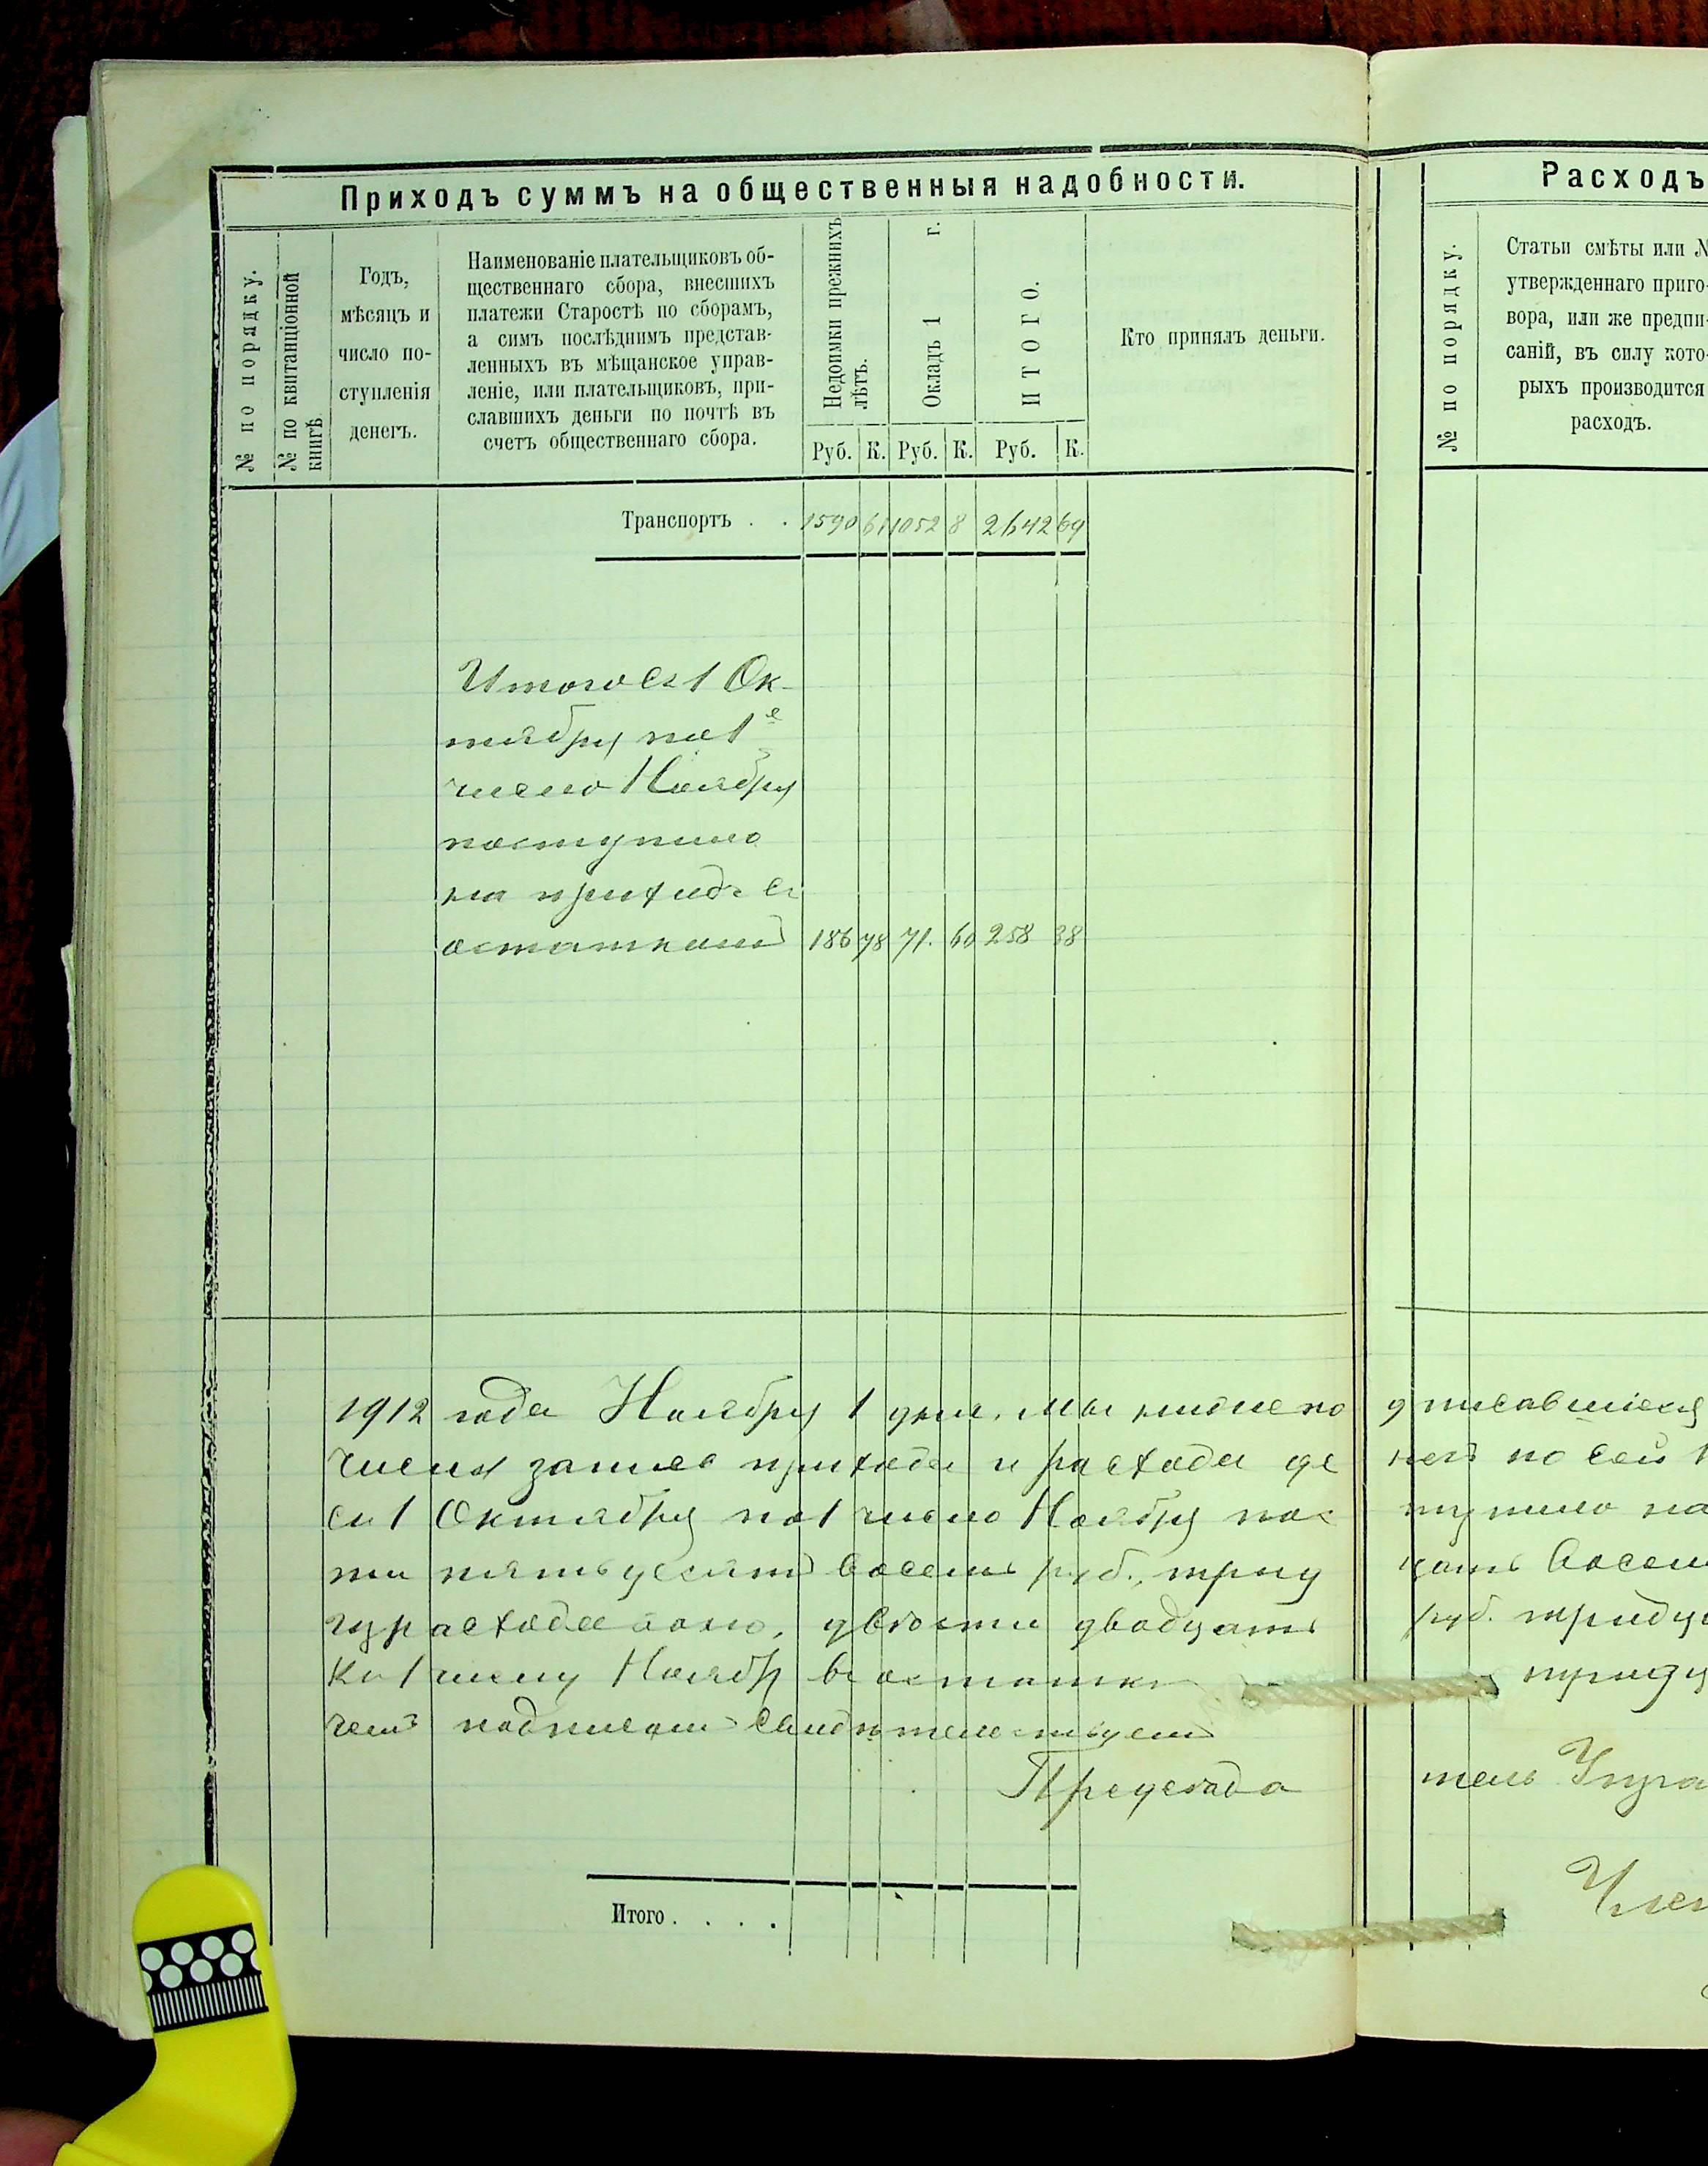 Приходъ суммъ на общественныя надобности.
№ по порядку.
№ по квитанціонной
книгѣ
Годъ,
мѣсяцъ и
число по-
ступленія
денегъ.
Наименованіе плательщиковъ об-
щественнаго сбора, внесшихъ
платежи Старостѣ по сборамъ,
а симъ послѣднимъ представ-
ленныхъ въ мѣщанское управ-
леніе, или плательщиковъ, при-
славшихъ деньги по почтѣ въ
счетъ общественнаго сбора.
Недоимки прежнихъ
лѣтъ.
Окладъ 1 г.
ИТОГО.
Руб. К. Руб. К. Руб. К.
Кто принялъ деньги.
Транспортъ . . 1590 61 1052 8 2642 69
Итого съ 1 Ок-
тября по 1е
число Ноября
поступило
на приходъ съ
остаткомъ 186 78 71. 60 258 38
1912 года Ноября 1 дня. Мы нижепо
числя запись прихода и расхода де
съ 1 Октября по 1 число Ноября пос
ти пятьдесятъ восемь руб., трид
двѣсти двадцать
Къ 1 числу Нояб въ остатки
чемъ подписомъ свидѣтельствуемъ
Председа
Итого . . . .
Расходъ
№ по порядку.
Статьи смѣты или №
утвержденнаго приго-
вора, или же предпи-
саній, въ силу кото-
рыхъ производится
расходъ.
дписавшіеся
негъ по сей
тупило на
цать восем
руб. тридц
тридц
тель Упра
Член